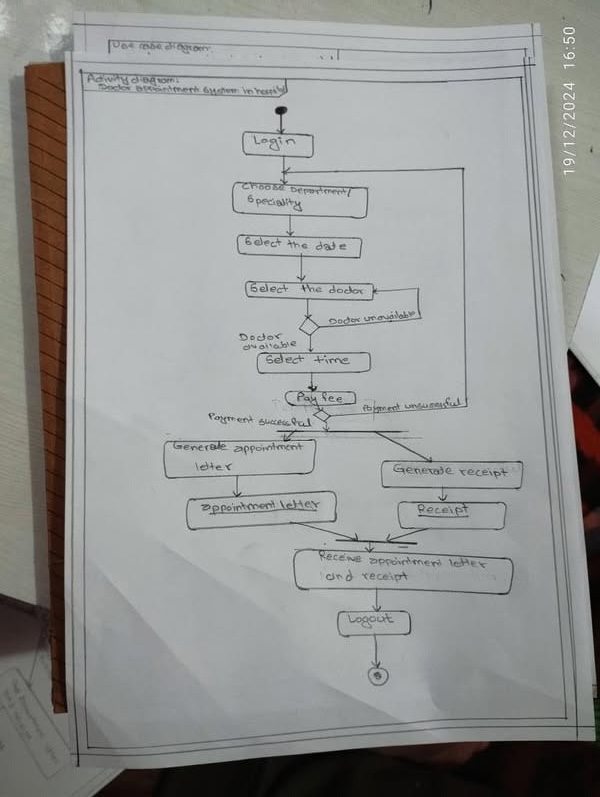 Use case diagram.
Activity diagram:
Doctor appointment system in hospital
Login
Choose Department/
Speciality
Select the date
Select the doctor
Doctor unavailable
Doctor
available
Select time
Pay fee
Payment unsuccessful
Payment successful
Generate appointment
letter
Generate receipt
appointment letter
Receipt
Receive appointment letter
and receipt
Logout
19/12/2024 16:50